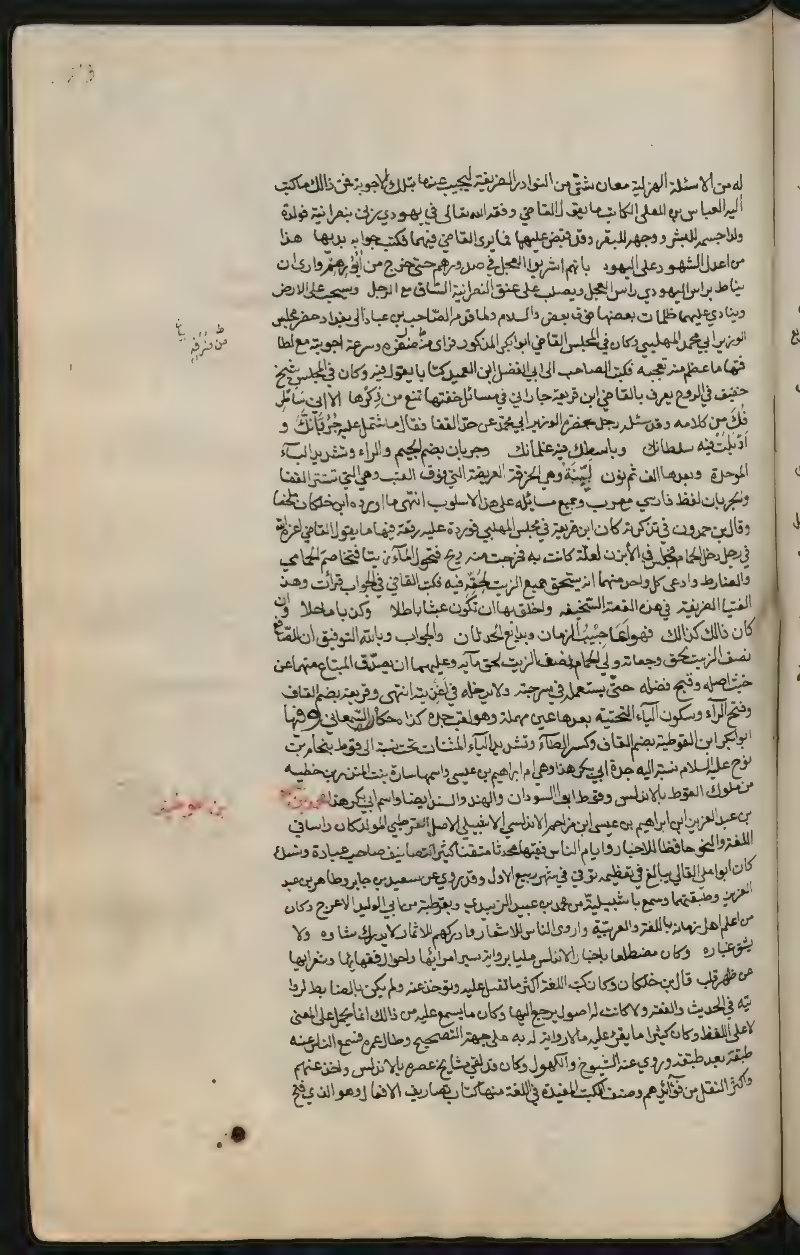 له من الاسئلة الهزلية معان شتى من النوادر الطريفة ليجيب عنها بتلك الاجوبة فمن ذالك ما كتب
اليه العباس بن المعلى الكاتب ما يقول القاضي وفقه الله تعالى في يهودي زنى بنصرانية فولدت
ولدا جسمه للبشر ووجهه للبقر وقد قبض عليهما فما يرى القاضي فيهما فكتب جوابه بديها هذا
من اعدل الشهود على اليهود بانهم اشربوا العجل في صدورهم حتى خرج من ايورهم وارى ان
يناط براس اليهودي راس العجل ويصلب على عنق النصرانية الساق مع الرجل ويسحب على الارض
وينادى عليهما ظلمات بعضها فوق بعض والسلام ولما قدم الصاحب بن عباد الى بغداد حضر مجلس
الوزير ابي محمد المهلبي وكان في المجلس القاضي ابو بكر المذكور فراى من ظرفه وسرعة اجوبته مع لطا
فتها ما عظم منه تعجبه فكتب الصاحب الى ابي الفضل ابن العميد كتابا يقول فيه وكان في المجلس شيخ
خفيف في الروح يعرف بالقاضي ابن قريعة جاراني في مسائل خفتها تمنع من ذكرها الا اني
من كلامه وقد سئله رجل بحضرة الوزير ابي محمد عن حد القفا فقال ما شتمل عليه جربانك و
فيه سلطانك وباسطك فيه غلمانك وجربان بضم الجيم والراء وتشديد الباء
الموحدة وبعدها الف ثم نون لبنة وهي الخرقة العريضة التي فوق القب وهي التي تستر القفا
والجربان لفظ فارسي معرب وجميع مسائله على هذا الاسلوب انتهى ما اورده ابن خلكان ملخصا
وقال بن حمدون في تذكرته كان ابن قريعة في مجلس المهلبي فوردة عليه رقعة فيها ما يقول القاضي اعزه الله
في رجل دخل الحمام فجلس في الابزن لعلة كانت به فخرجت منه ريح فتحول الماء زيتا فتخاصم الحمامي
والضارط وادعى كل واحد منهما انه يستحق جميع الزيت لحقه فيه فكتب القاضي في الجواب قرات هذه
الفتيا الطريفة في هذه القصة السخيفة واخلق بها ان تكون عبثا باطلا وكذبا ماحلا وان
كان ذالك كذالك فهو من اعاجيب الزمان وبدايع الحدثان والجواب وبالله التوفيق ان للضارط
نصف الزيت بحق وجعائه وللحمامي نصف الزيت بحق مايه وعليهما ان يصدق المبتاع منهما عن
خبث اصله وقبح فصله حتى يستعمله في سرجته ولا يدخله في اغذيته انتهى وقريعة بضم القاف
وفتح الراء وسكون الياء التحتية بعدها عين مهملة وهو لقب جده كذا حكاه السمعاني وفيها
ابو بكر ابن القوطية بضم القاف وكسر الطاء وتشديد الياء المثنات تحت نسبة الى قوط بن حام بن
نوح عليه السلام نسبة اليه جدة ابي بكر هذا وهي ام ابراهيم بن عيسى واسمها سارة بنت المنذر بن خطيبه
من ملوك القوط بالاندلس وقوط ابو السودان والهند والسند ايضا واسم ابي بكر هذا محمد بن عمر
بن عبد العزيز ابن ابراهيم بن عيسى ابن مزاحم الاندلسي الاشبيلي الاصل القرطبي المولد كان راسا في
اللغة والنحو حافظا للاخبار وايام الناس فقيها محدثا متقنا كثير التصانيف صاحب عبادة ونسك
كان ابو علي القالي يبالغ في تعظيمه توفي في شهر ربيع الاول وقد روى عن سعيد بن جابر وطاهر بن عبد
العزيز وطبقتهما وسمع باشبيلية من محمد بن عبيد الزبيدي وبقرطبة من ابي الوليد الاعرج وكان
من اعلم اهل زمانه باللغة والعربية واروى الناس للاشعار وادركهم للاثار لا يدرك شاوه ولا
يشق غباره وكان مضطلعا باخبار الاندلس مليا برواية سير امرائها واحوال فقهائها وشعرائها
عن ظهر قلب قال بن خلكان وكان كتب اللغة اكثر ما تقبل عليه ويوخذ عنه ولم يكن بالضابط لروا
يته في الحديث والفقه ولا كانت له اصول يرجع اليها وكان ما يسمع عليه من ذالك انما يحمل على المعنى
لا على اللفظ وكان كثيرا ما يقرئ عليه ما لا رواية له به على جهة التصحيح وطال عمره فسمع الناس منه
طبقة بعد طبقة وروى عنه الشيوخ والكهول وكان قد لقي مشايخ عصره بالاندلس واخذ عنهم
واكثر النقل من فوائدهم وصنف الكتب المفيدة في اللغة منها كتاب تصاريف الافعال وهو الذي فتح